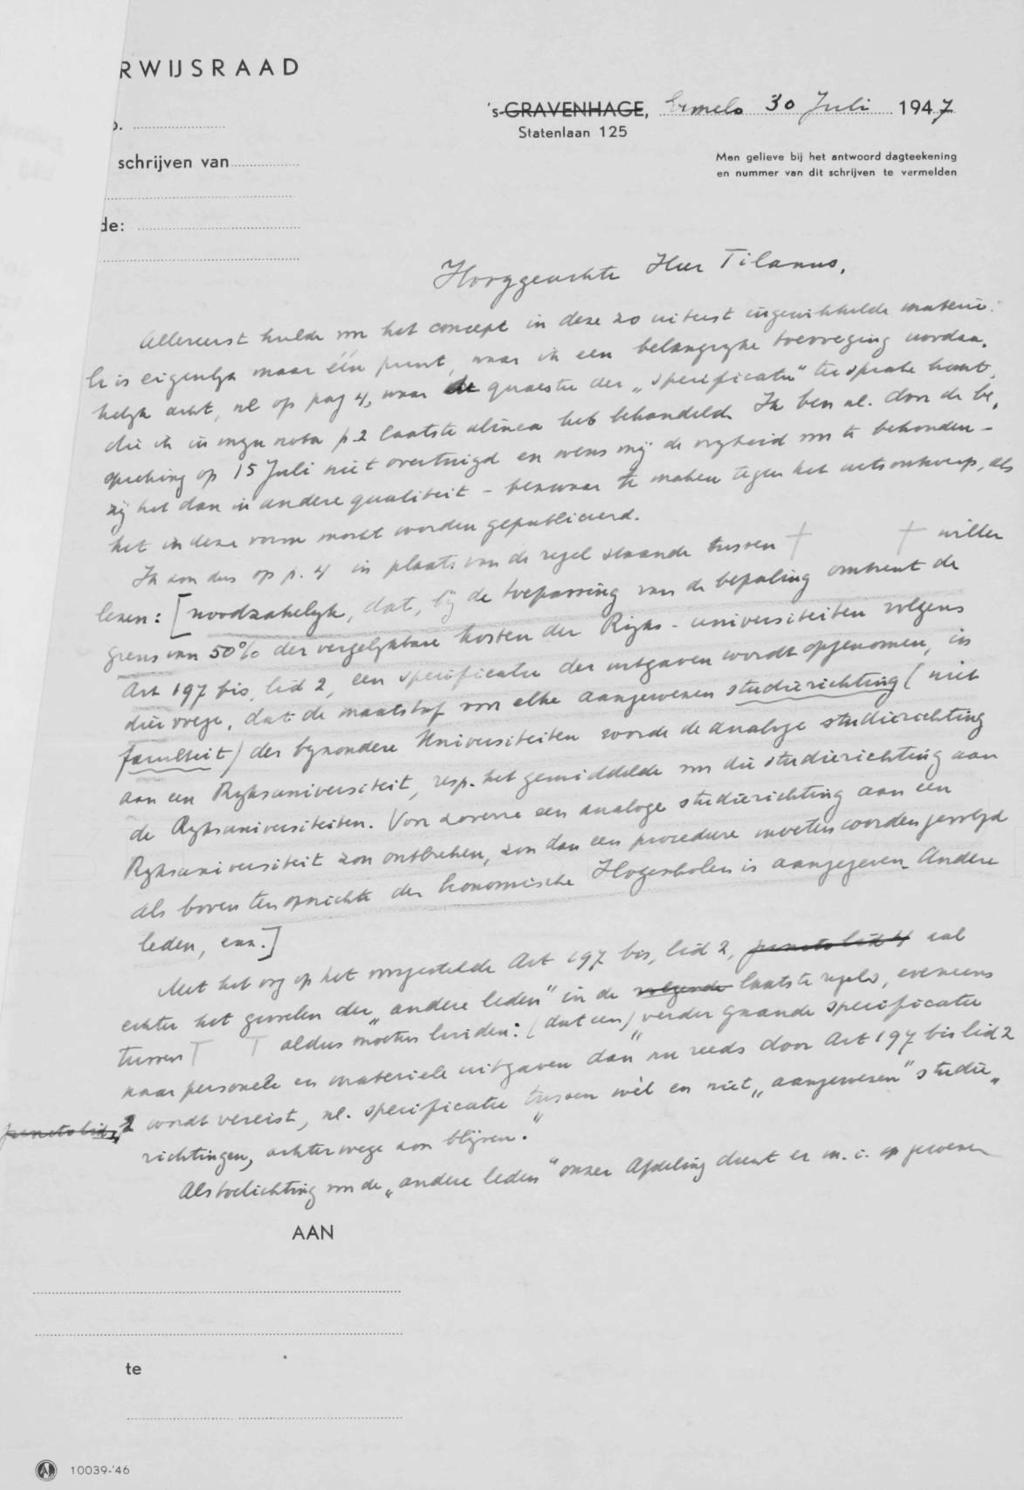 RWIJSRAAD
's-GRAVENHAGE, Ermelo 30 Juli 1947
Statenlaan 125
Men gelieve bij het antwoord dagteekening
en nummer van dit schrijven te vermelden
schrijven van
de:
Hooggeachte Heer Tilanus,
Allereerst hulde voor het concept in deze zo uiterst ingewikkelde materie.
Er is eigenlyk maar één punt, waar ik een belangryke toevoeging noodza-
kelyk acht, nl. op pag 4, waar de quaestie der „specificatie" ter sprake komt,
die ik in myn nota p. 2 laatste alinea heb behandeld. Ik ben nl. door de be-
spreking op 15 Juli niet overtuigd en wens my de vryheid voor te behouden -
zy het dan in andere qualiteit - bezwaar te maken tegen het wetsontwerp, als
het in deze vorm mocht worden gepubliceerd.
Ik zou dus op p. 4 in plaats van de regel staande tussen † † willen
lezen: [noodzakelyk, dat, by de toepassing van de bepaling omtrent de
grens van 50% der vergelykbare kosten der Ryks-universiteiten volgens
Art 197 bis, lid 2, een specificatie der uitgaven wordt opgenomen, in
dier voege, dat de maatstaf voor elke aangewezen studierichting (niet
faculteit) der byzondere Universiteiten worde de analoge studierichting
aan een Ryksuniversiteit, resp. het gemiddelde voor die studierichting aan
de Ryksuniversiteiten. Voor zoverre een analoge studierichting aan een
Ryksuniversiteit zou ontbreken, zou dan een procedure moeten worden gevolgd
als boven ten opzichte der Economische Hogescholen is aangegeven. Andere
leden, enz.]
Met het oog op het voorgestelde Art 197 bis, lid 2, zal
echter het gevoelen der „andere leden" in de volgende laatste regels, eveneens
tussen T T aldus moeten luiden: (dat een) „verder gaande specificatie
naar personele en materiele uitgaven dan nu reeds door Art 197 bis lid 2
wordt vereist, nl. specificatie tussen wèl en niet „aangewezen" studie-
richtingen, achterwege zou blyven."
Als toelichting voor de „andere leden" onzer Afdeling dient er m.i. op gewezen
AAN
te
10039-'46